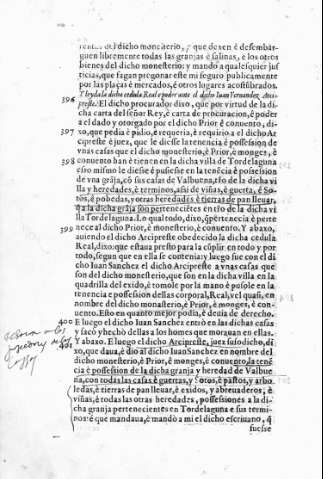 dicho monesterio, y que dexen è desembar-
guen libremente todas las granjas è salinas, e los otros
bienes del dicho monesterio: y mando a qualesquier jus
ticias, que fagan pregonar este mi seguro publicamente
por las plaças è mercados, è otros lugares acostũbrados.
Y leyda la dicha cedula Real e poder ante el dicho Iuan Fernandez Arci-
396 preste. El dicho procurador dixo, que por virtud de la di-
cha carta del señor Rey, è carta de procuracion, è poder
a el dado y otorgado por el dicho Prior è conuento, di-
397 xo, que pedia è pidio, e requeria, è requirio a el dicho Ar
cipreste è juez, que le diesse la tenencia è possession de
vnas casas que el dicho monesterio, Prior è, monges, è
398 conuento han è tienen en la dicha villa de Tordelaguna
eso mismo le diesse è pusiesse en la tenẽcia è possession
de vna grãja, cõ sus casas de Valbuena, ẽto de la dicha vi
lla y heredades, è terminos, assi de viñas, è guerta, è So-
tos, è pobedas, y otras heredades è tierras de pan lleuar,
q̃ a la dicha grãja son pertenecientes en to de la dicha vi
lla Tordelaguna. Lo qual todo, dixo, q̃ pertenecia è perte
399 nece al dicho Prior, è monesterio, è conuento. Y abaxo,
auiendo el dicho Arcipreste obedecido la dicha cedula
Real, dixo: que estaua presto para la cõplir en todo y por
todo, segun que en ella se contenia: y luego fue con el di
cho Iuan Sanchez el dicho Arcipreste a vnas casas que
son del dicho monesterio, que son en la dicha villa en la
quadrilla del exido, è tomole por la mano è pusole en la
tenencia e possession dellas corporal, Real, vel quasi, en
nombre del dicho monasterio, è Prior, è monges, è con-
uento. Esto en quanto mejor podia, è deuia de derecho.
400 E luego el dicho Iuan Sanchez entrò en las dichas casas
y sacò y hechò dellas a los homes que morauan en ellas.
401 Y abaxo. E luego el dicho Arcipreste, juez suso dicho, di
xo, que daua, è dio al dicho Iuan Sanchez en nombre del
dicho monesterio, è Prior, è monges, è conuento, la tenẽ
cia è possession de la dicha granja y heredad de Valbue
na, con todas las casas è guertas, y Sotos, è pastos, y arbo
ledas, è tierras de pan lleuar, è exidos, y abreuaderos, è
viñas, è todas las otras heredades, possessiones a la di-
cha granja pertenecientes en Tordelaguna e sus termi-
nos: è que mandaua, è mandò a mi el dicho escriuano, q̃
fuesse